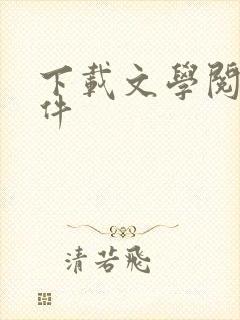 下載文學閱
件
清若飛